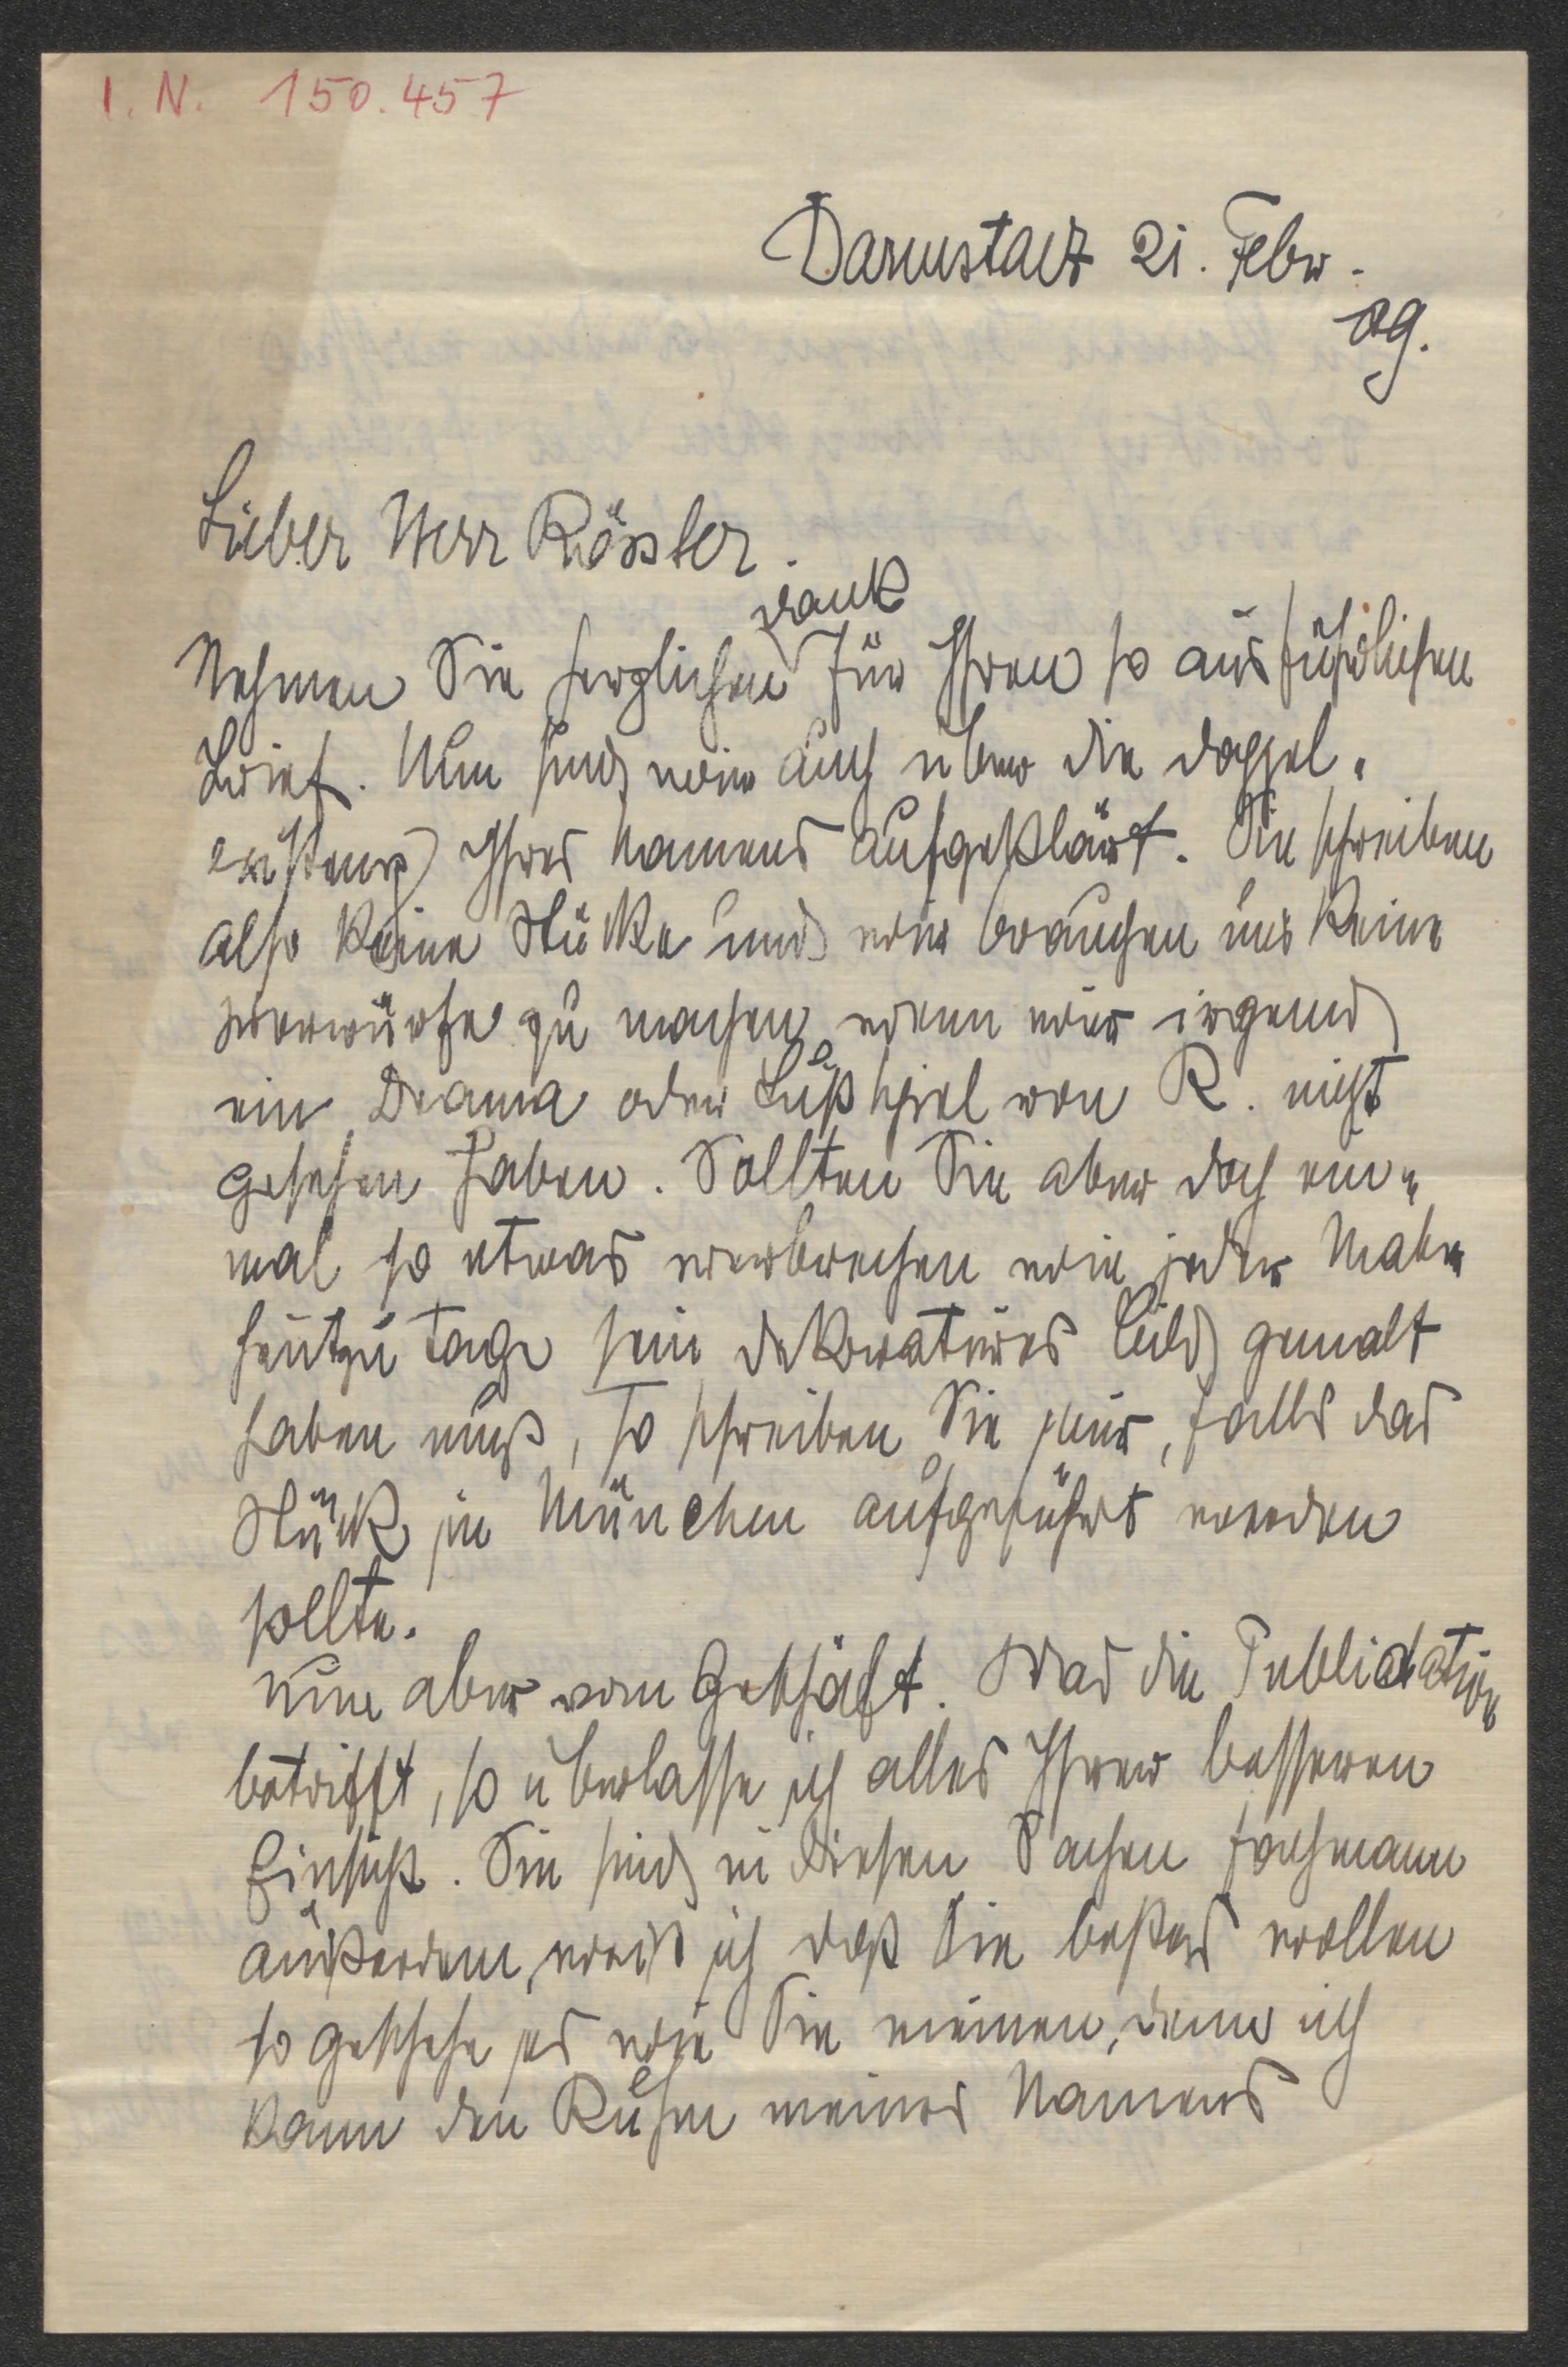 I. N. 150.457
Darmstadt 21. Febr.
09.
Lieber Herr Rössler.
dank
Nehmen Sie herzlichen für Ihren so ausführlichen
Brief. Nun sind wir auch über die Doppel-
existenz Ihres Namens aufgeklärt. Sie schreiben
also keine Stücke und wir brauchen uns keine
Vorwürfe zu machen wenn wir irgend
ein Drama oder Lustspiel von R. nicht
gesehen haben. Sollten Sie aber doch ein-
mal so etwas verbrechen wie jeder Maler
heutzu tage sein dekoratives Bild gemalt
haben muß, so schreiben Sie mir, falls das
Stück in München aufgeführt werden
sollte.
Nun aber vom Geschäft. Was die Publication
betrifft, so überlasse ich alles Ihrer besseren
Einsicht. Sie sind in diesen Sachen Fachmann
außerdem weiß ich daß Sie bestes wollen
so geschehe es wie Sie meinen, denn ich
kann den Ruhm meines Namens